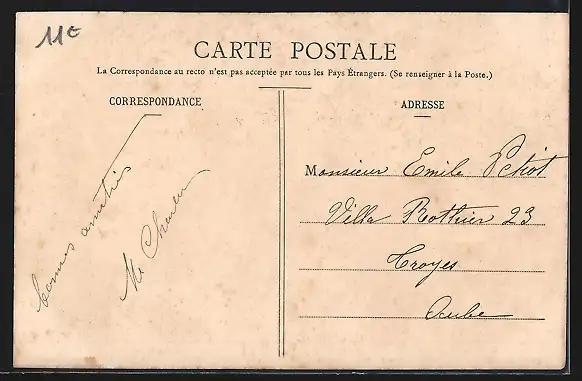 11€
CARTE POSTALE
La Correspondance au recto n'est pas acceptée par tous les Pays Étrangers. (Se renseigner à la Poste.)
CORRESPONDANCE
bonnes amitiés
ADRESSE
Monsieur Emile Petiot
Villa Rothier 23
Troyes
Aube